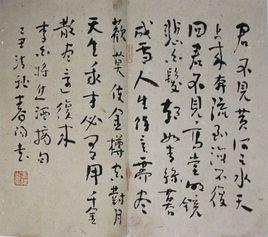 君不見黃河之水天
上來奔流到海不復
回君不見高堂明鏡
悲白髮朝如青絲暮
成雪人生得意須盡
歡莫使金樽空對月
天生我才必有用千金
散盡還復來
李白將進酒摘句